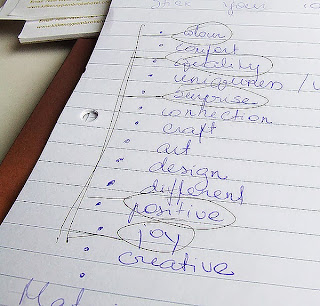 your
• colour
• comfort
• quality
• uniqueness /
• surprise
• connection
• craft
• art
• design
• different
• positive
• joy
• creative